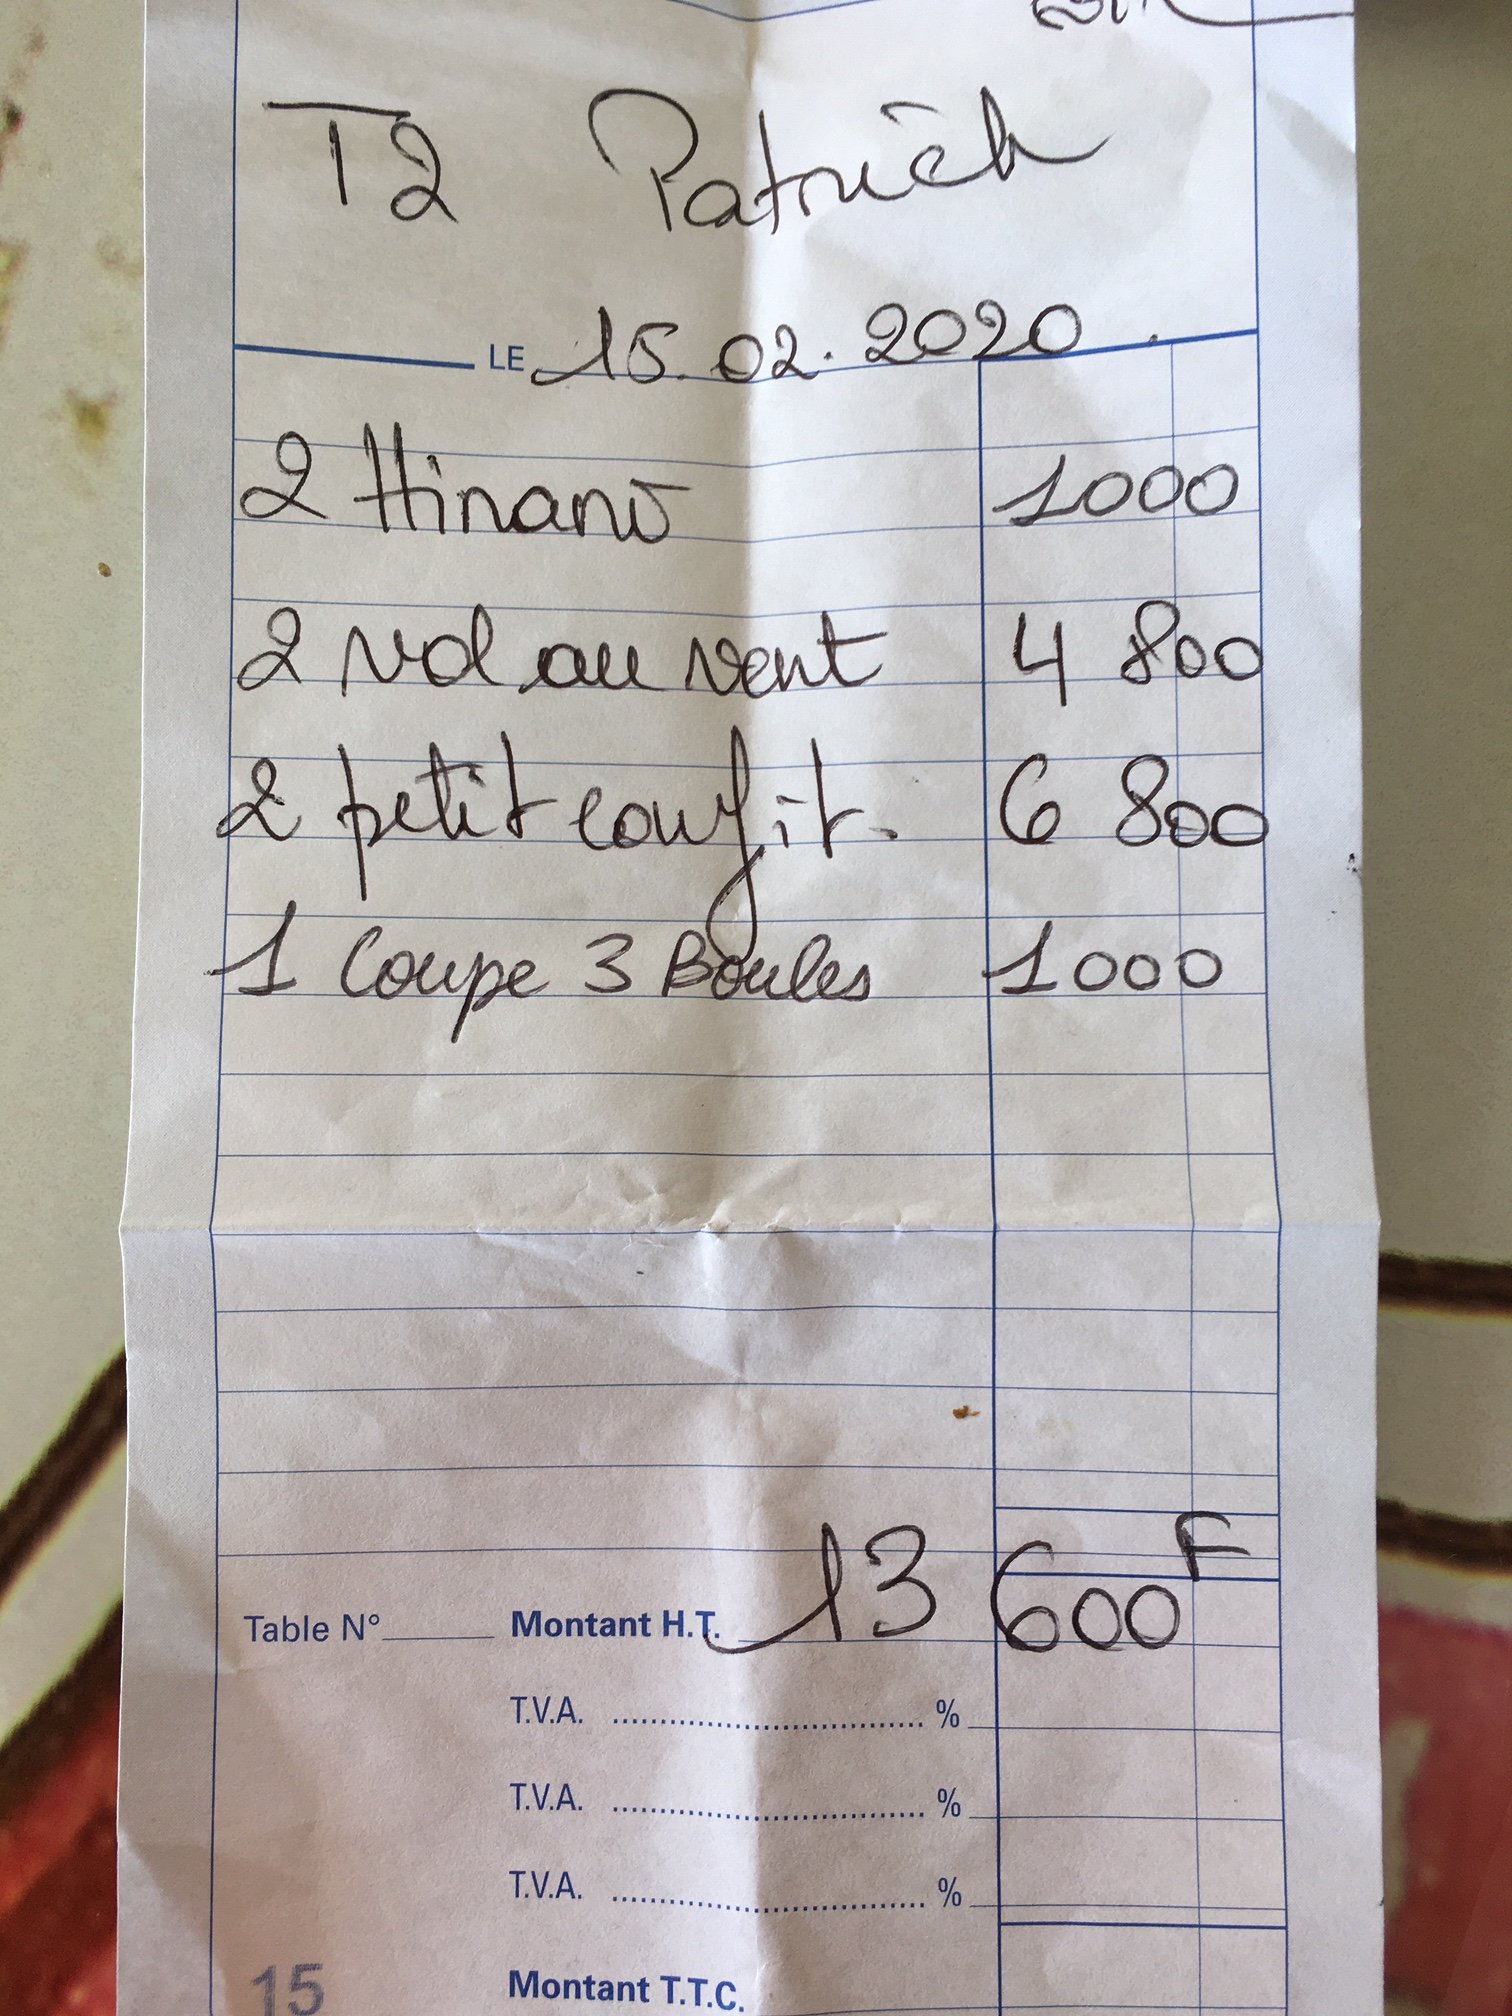 T2 Patrick
LE 15.02.2020
2 Hinano 1000
2 vol au vent 4 800
2 petit confit. 6 800
1 Coupe 3 Boules 1000
13 600 F
Table N° Montant H.T.
T.V.A. %
T.V.A. %
T.V.A. %
15 Montant T.T.C.